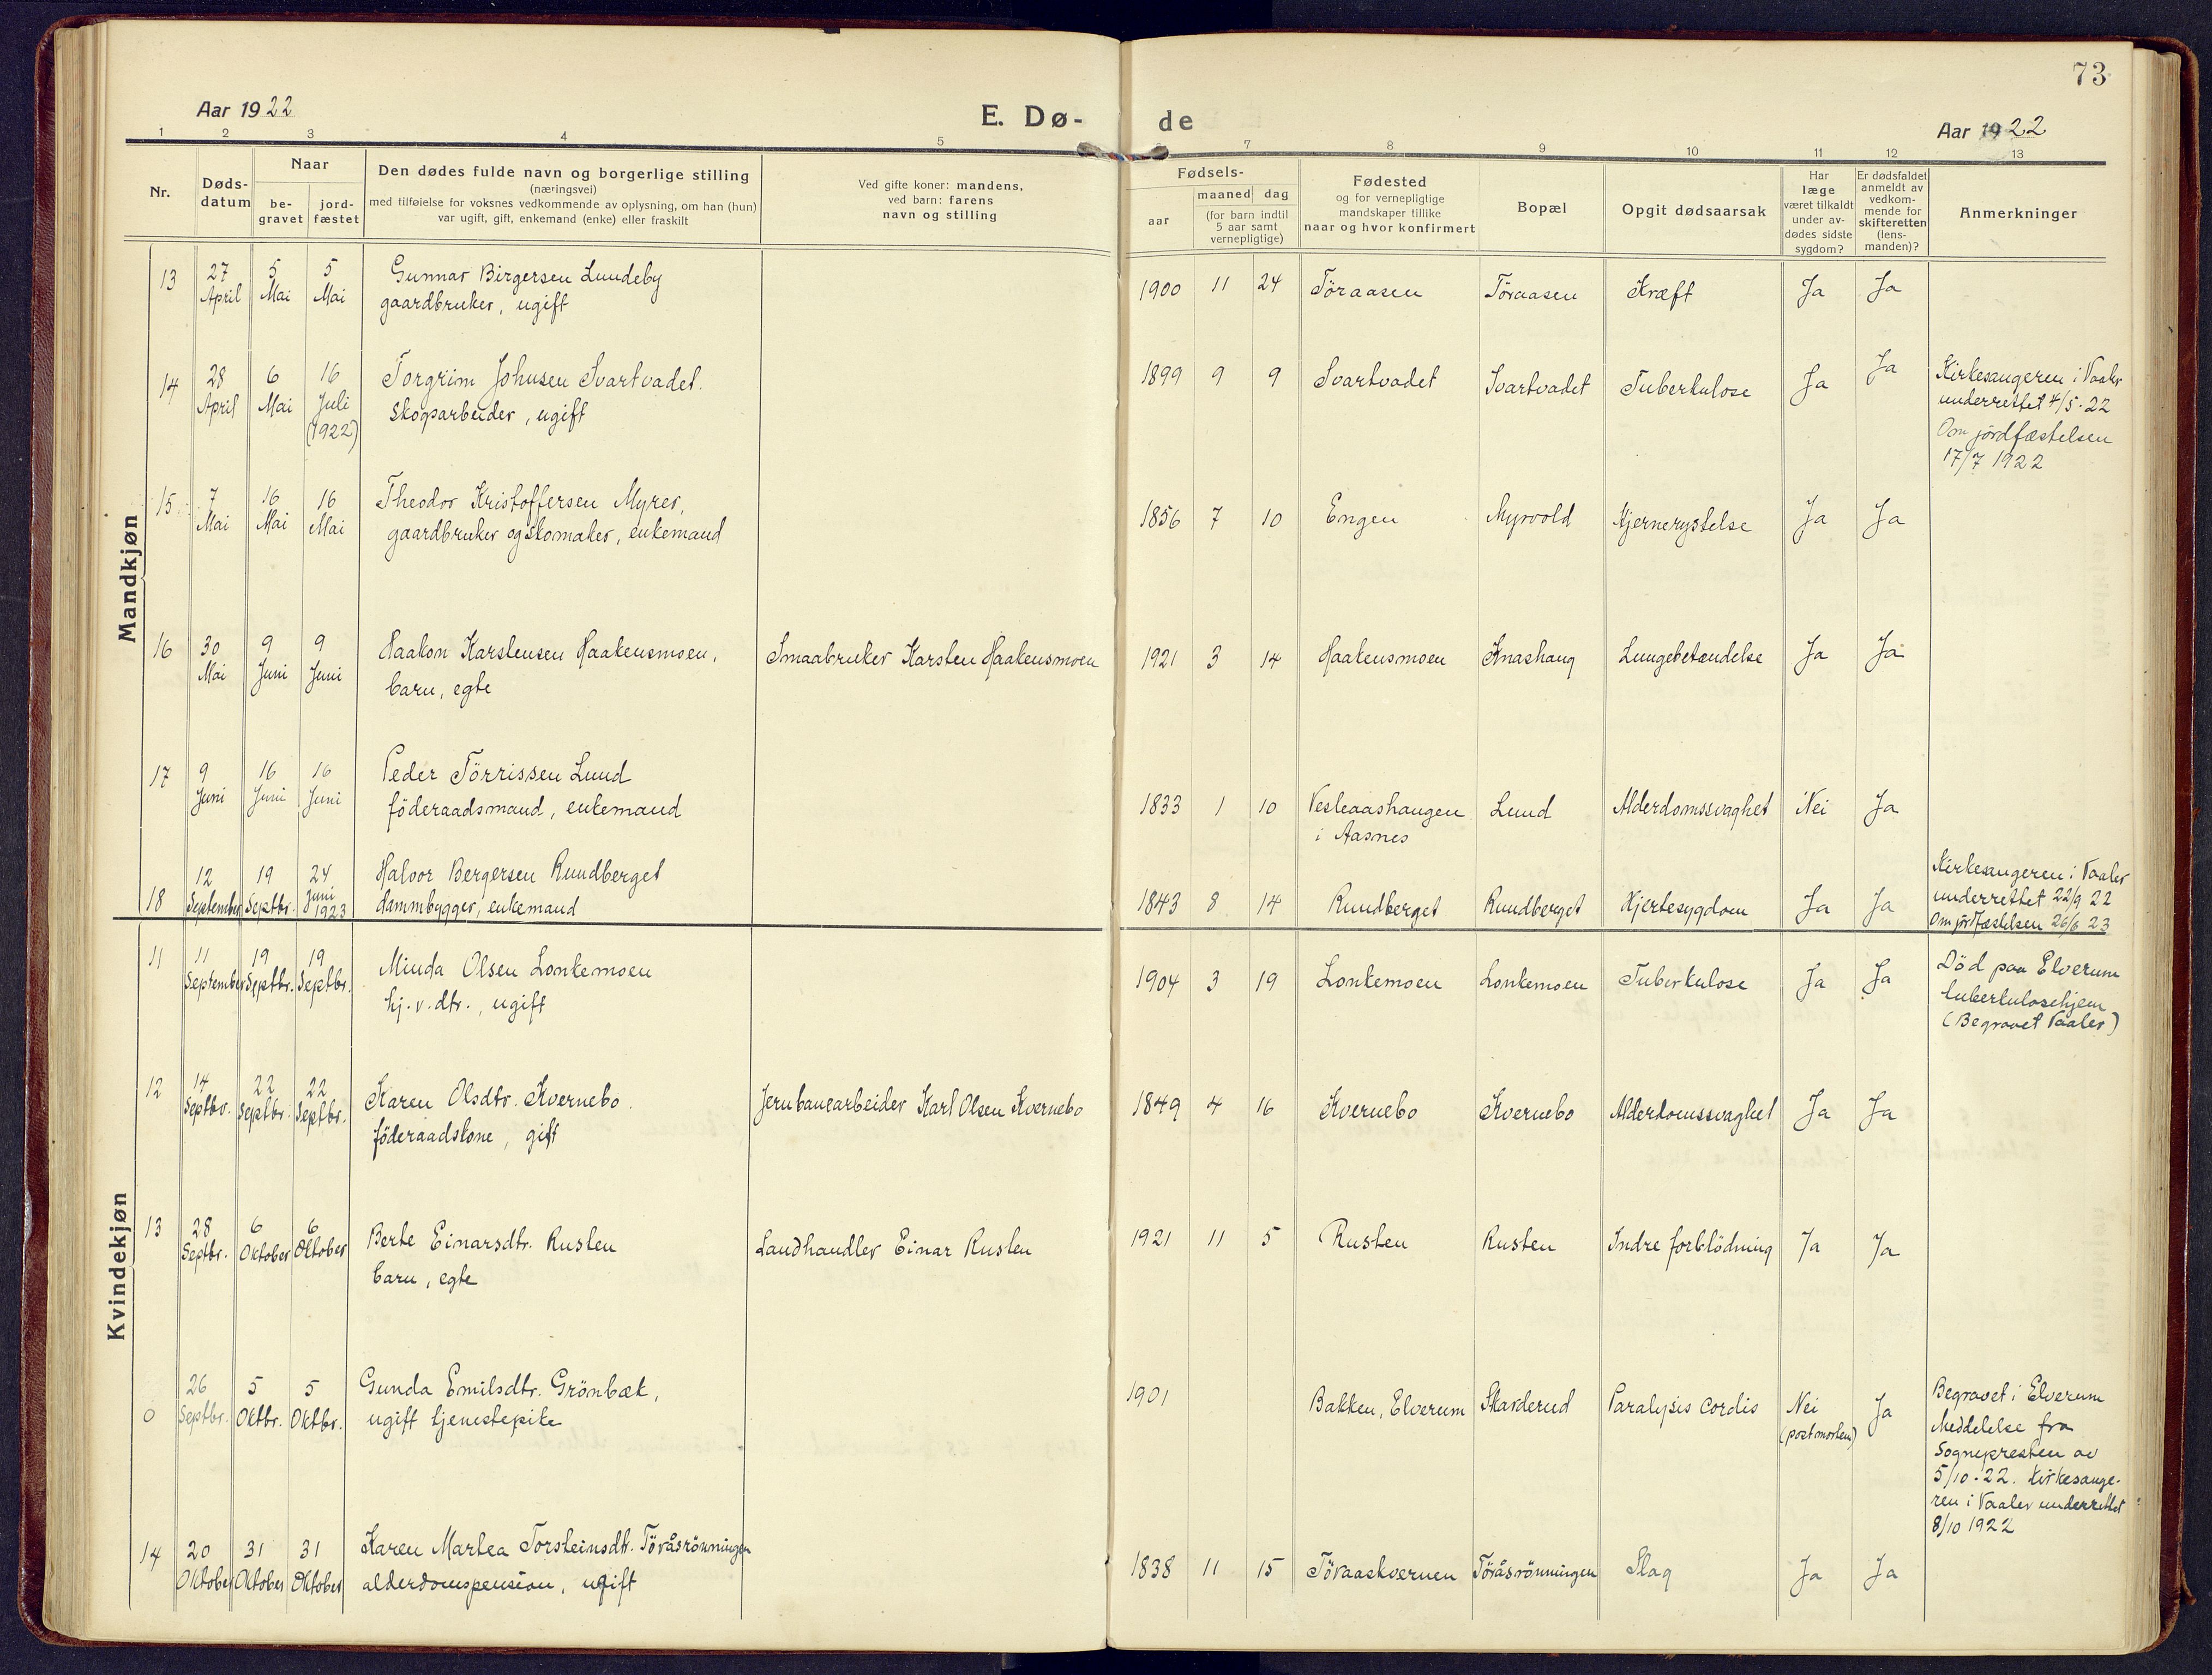 73
Aar 1922
E. Dø-
de
Aar 1922
1 2 3 4 5 7 8 9 10 11 12 13
Nr.
Døds-
datum
Naar
be-
gravet
jord-
fæstet
Den dødes fulde navn og borgerlige stilling
(næringsvei)
med tilføielse for voksnes vedkommende av oplysning, om han (hun)
var ugift, gift, enkemand (enke) eller fraskilt
Ved gifte koner: mandens,
ved barn: farens
navn og stilling
Fødsels-
aar
maaned dag
(for barn indtil
5 aar samt
vernepligtige)
Fødested
og for vernepligtige
mandskaper tillike
naar og hvor konfirmert
Bopæl
Opgit dødsaarsak
Har
læge
været tilkaldt
under av-
dødes sidste
sygdom?
Er dødsfaldet
anmeldt av
vedkom-
mende for
skifteretten
(lens-
manden)?
Anmerkninger
Mandkjøn
13 27 5 5 Gunnar Birgersen Lundeby
April Mai Mai gaardbruker, ugift
1900 11 24 Töraasen Töraasen Kræft Ja Ja
14 28 6 16 Torgrim Johnsen Svartvadet.
April Mai Juli skogsarbeider, ugift
(1922)
1899 9 9 Svartvadet Svartvadet Tuberkulose Ja Ja
Kirkesangeren i Vaaler
underrettet 4/5-22
Om jördfæstelsen
17/7 1922
15 7 16 16 Theodor Kristoffersen Myrer,
Mai Mai Mai gaardbruker og skomaker, enkemand
1856 7 10 Engen Myrvold Hjernerystelse Ja Ja
16 30 9 9 Haakon Karstensen Haakensmoen,
Mai Juni Juni barn, egte
Smaabruker Karsten Haakensmoen
1921 3 14 Haakensmoen Knashaug Lungebetændelse Ja Ja
17 9 16 16 Peder Törrissen Lund
Juni Juni Juni föderaadsmand, enkemand
1833 1 10 Vesleaashaugen Lund Alderdomssvaghet Nei Ja
i Aasnes
18 12 19 24 Halvor Bergersen Rundberget
September Septbr. Juni dammbygger, enkemand
1923
1843 8 14 Rundberget Rundberget Hjertesygdom Ja Ja
Kirkesangeren i Vaaler
underrettet 22/9 22
Om jördfæstelsen 26/6 23
Kvindekjøn
11 11 19 19 Minda Olsen Lonkemoen
September Septbr. Septbr. hj.v. dtr., ugift
1904 3 19 Lonkemoen Lonkemoen Tuberkulose Ja Ja
Död paa Elverum
tuberkulosehjem
(Begravet Vaaler)
12 14 22 22 Karen Olsdtr. Kvernebo
Septbr. Septbr. Septbr. föderaadskone, gift
Jernbanearbeider Karl Olsen Kvernebo
1849 4 16 Kvernebo Kvernebo Alderdomssvaghet Ja Ja
13 28 6 6 Berte Einarsdtr. Rusten
Septbr. Oktober Oktober barn, egte
Landhandler Einar Rusten
1921 11 5 Rusten Rusten Indre forblödning Ja Ja
0 26 5 5 Gunda Emilsdtr. Grönbæk,
Septbr. Oktbr. Oktbr. ugift tjenestepike
1901 Bakken, Elverum Skarderud Paralysis cordis Nei Ja
(post mortem)
Begravet i Elverum
Meddelelse fra
Sognepresten av
5/10-22. Kirkesange-
ren i Vaaler underrettet
8/10 1922
14 20 31 31 Karen Martea Torsteinsdtr. Töråsrönningen
Oktober Oktober Oktober alderdomspension, ugift
1838 11 15 Töraaskvernen Töråsrönningen Slag Ja Ja